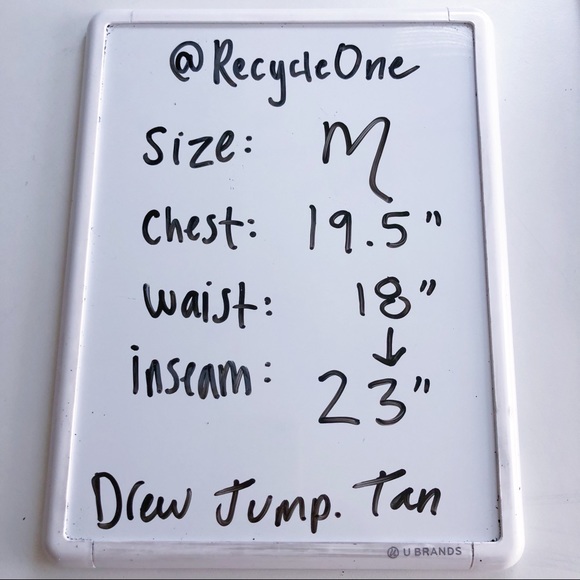 @RecycleOne
Size: M
Chest: 19.5"
Waist: 18"
↓
inseam: 23"
Drew Jump. Tan
U BRANDS